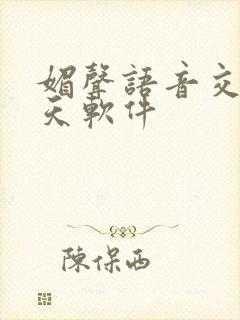 媚聲語音交
天軟件
陳保西